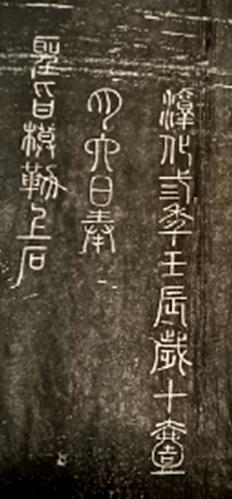 淳化弎秊壬辰歲十壹
月六日奉
聖旨模勒上石